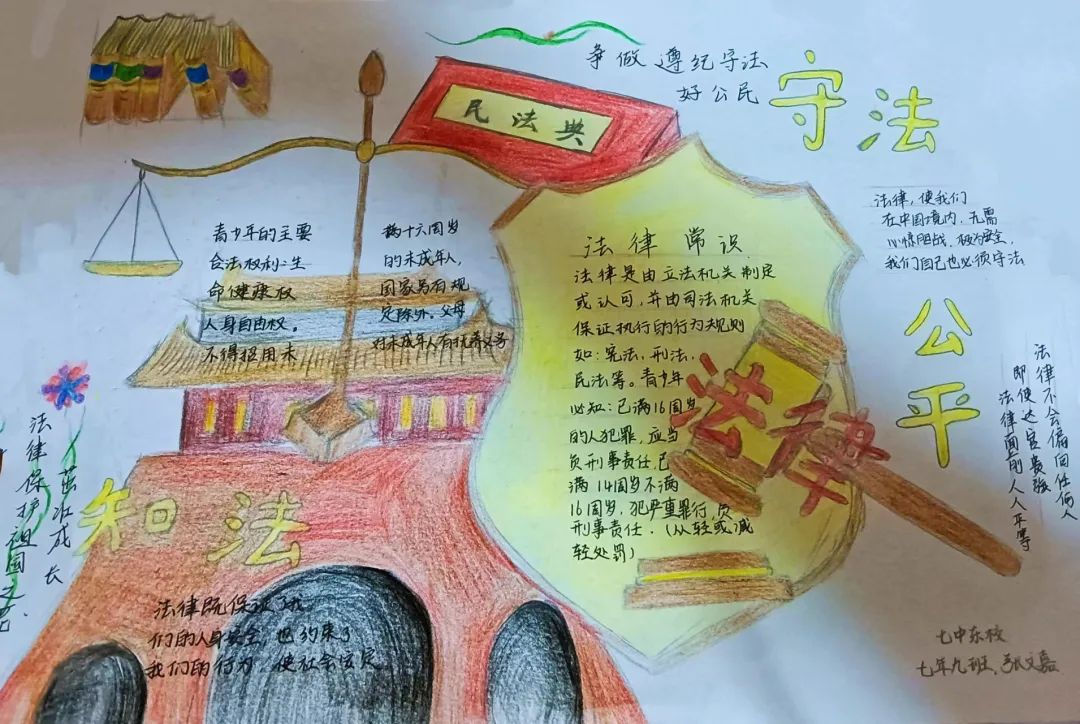 争做遵纪守法
好公民
守法
民法典
法律,使我们
在中国境内,无需
心惊胆战,极为安全,
我们自己也必须守法
青少年的主要
合法权利:生
命健康权
人身自由权。
不得招用未
满十六周岁
的未成年人,
国家另有规
定除外。父母
对未成年人有抚养义务
法律常识
法律是由立法机关制定
或认可,并由司法机关
保证执行的行为规则
如:宪法,刑法,
民法等。青少年
必知:已满16周岁
的人犯罪,应当
负刑事责任,已
满14周岁不满
16周岁,犯严重罪行,负
刑事责任.(从轻或减
轻处罚)
法律
公平
法律不会偏向任何人
即使达官贵族
法律面前人人平等
知法
法律保护祖国之
茁壮成长
法律既保护了我
们的人身安全,也约束了
我们的行为,使社会安定
七中东校
七年九班、张文嘉